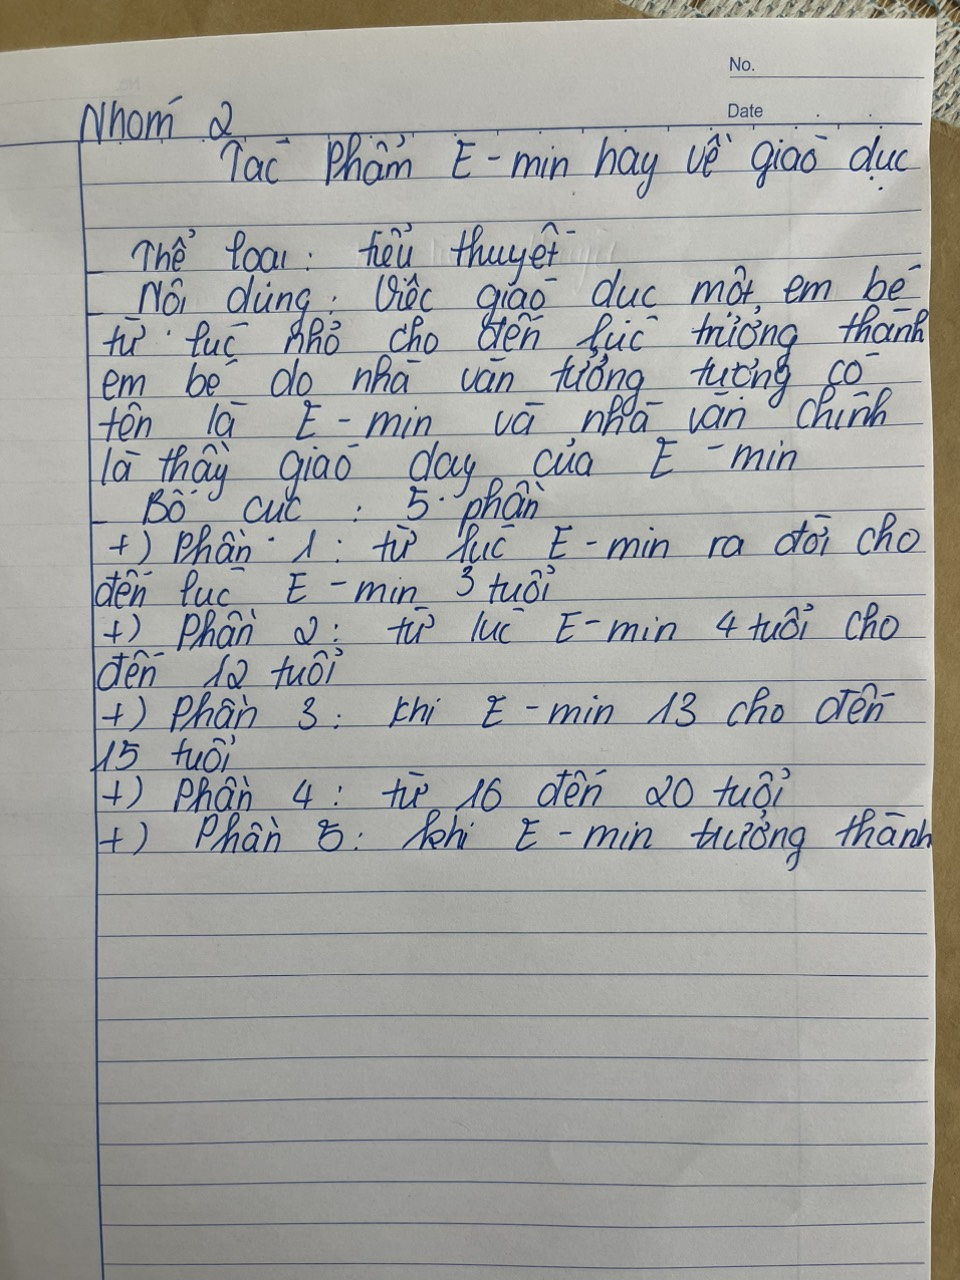 No.
Date
Nhóm 2
Tác Phẩm E-min hay về giáo dục
- Thể loại: tiểu thuyết
- Nội dung: Việc giáo dục một em bé
từ lúc nhỏ cho đến lúc trưởng thành
em bé do nhà văn tưởng tượng có
tên là E-min và nhà văn chính
là thầy giáo dạy của E-min
- Bố cục: 5 phần
+) Phần 1: từ lúc E-min ra đời cho
đến lúc E-min 3 tuổi
+) Phần 2: từ lúc E-min 4 tuổi cho
đến 12 tuổi
+) Phần 3: khi E-min 13 cho đến
15 tuổi
+) Phần 4: từ 16 đến 20 tuổi
+) Phần 5: khi E-min trưởng thành